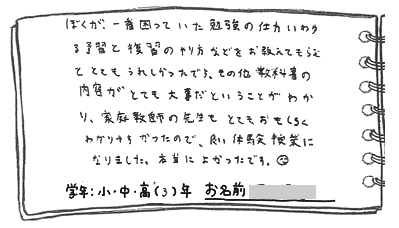 ぼくが、一番困っていた勉強の仕方いわゆ
る予習と復習のやり方などをお教えてもらえ
てとてもうれしかったです。その他教科書の
内容がとても大事だということがわか
り、家庭教師の先生もとてもおもしろく
わかりやすかったので、良い体験授業に
なりました。本当によかったです。☺
学年:小・中・高(3)年 お名前